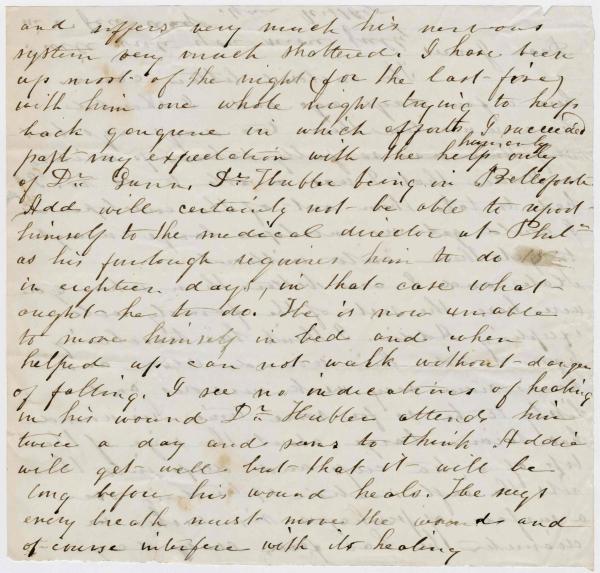 and suffers very much his nervous
system very much shattered. I have been
up most of the night for the last five,
with him one whole night trying to keep
back gangrene in which efforts I succeeded
past my expectation with the help only
of Dr Gunn, Dr Hubler being in Bellefonte
Add will certainly not be able to report
himself to the medical director at Phila
as his furlough requires him to do
in eighteen days, in that case what
ought he to do. He is now unable
to move himself in bed and when
helped up can not walk without danger
of falling. I see no indications of healing
in his wound Dr Hubler attends him
twice a day and seems to think Addie
will get well but that it will be
long before his wound heals. He says
every breath must move the wound and
of course interfere with its healing